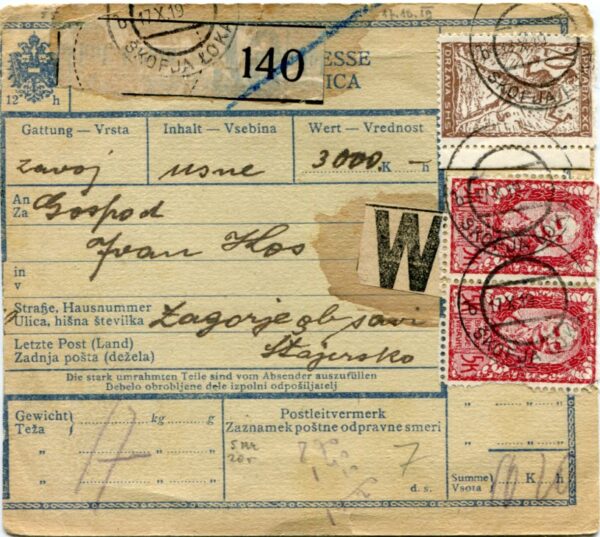 17.10.19
6 17 X 19
ŠKOFJA LOKA
140
ESSE
ICA
12 h
Gattung - Vrsta
Inhalt - Vsebina
Wert - Vrednost
zavoj
usne
3000 K — h
An
Za
Gospod
Ivan Kos
W
in
v
Straße, Hausnummer
Ulica, hišna številka
Zagorje ob savi
Letzte Post (Land)
Zadnja pošta (dežela)
Štajersko
Die stark umrahmten Teile sind vom Absender auszufüllen
Debelo obrobljene dele izpolni odpošiljatelj
Gewicht
Teža
kg
g
Postleitvermerk
Zaznamek poštne odpravne smeri
17
7
d. s.
Summe
Vsota
K
h